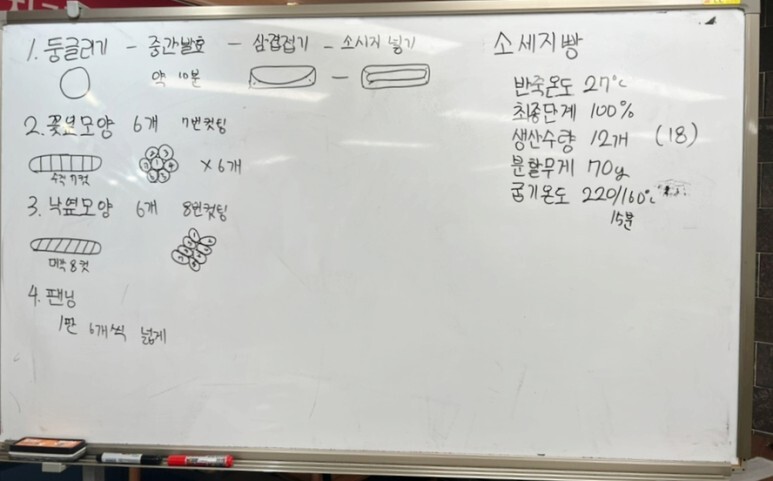 1. 둥글리기 - 중간발효 - 삼겹접기 - 소시지 넣기
약 10분
2. 꽃잎모양 6개 7번컷팅
수직 7컷
× 6개
3. 낙엽모양 6개 8번컷팅
8컷
4. 팬닝
1판 6개씩 넓게
소세지빵
반죽온도 27℃
최종단계 100%
생산수량 12개 (18)
분할무게 70g
굽기온도 220/160℃
15분